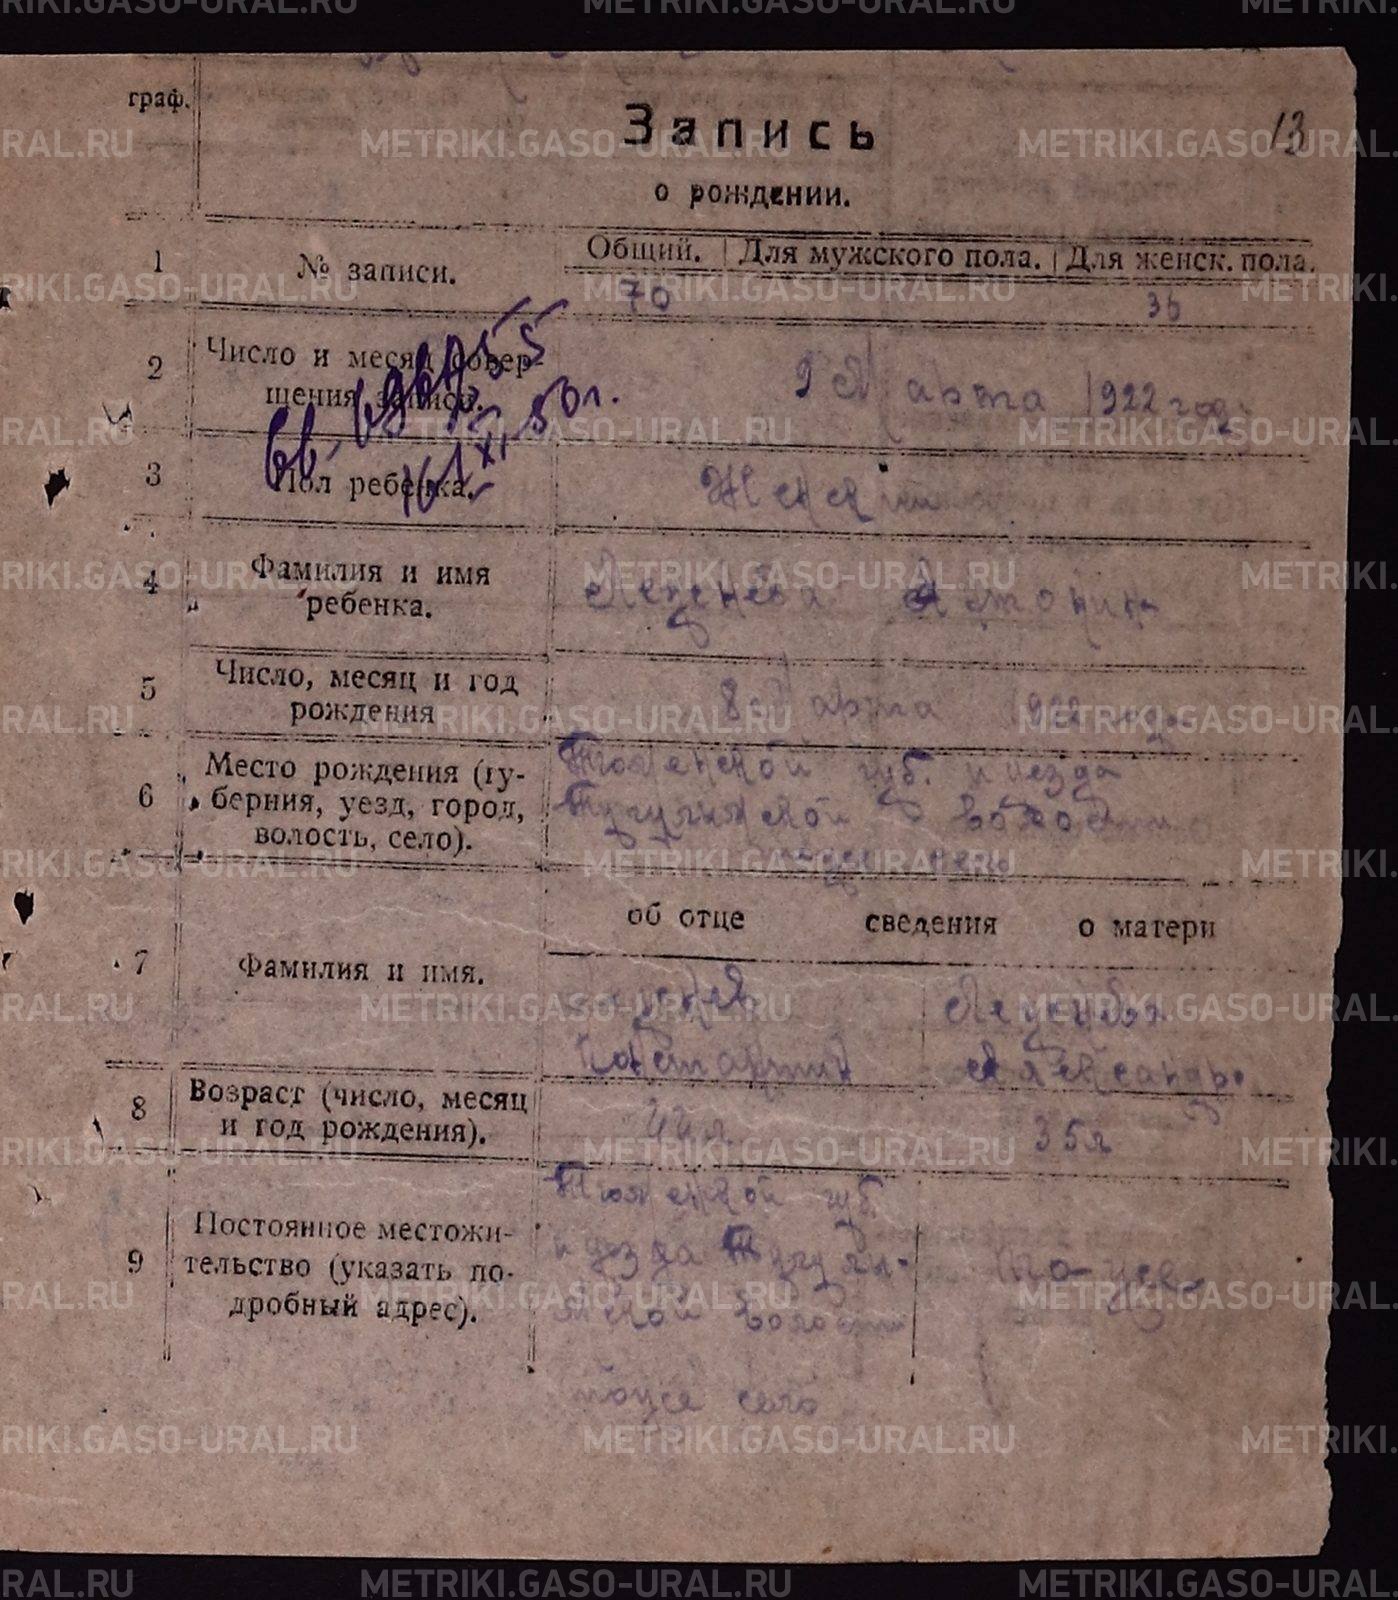 граф.
Запись
13
о рождении.
1
№ записи.
Общий.
Для мужского пола.
Для женск. пола.
70
36
2
Число и месяц совер-
шения записи.
9 Марта 1922 года
3
Пол ребенка.
Жен
4
Фамилия и имя
ребенка.
5
Число, месяц и год
рождения
8 Марта 1922 года
6
Место рождения (гу-
берния, уезд, город,
волость, село).
Тюменской губ. и уезда
Тугулымской волости
об отце сведения о матери
7
Фамилия и имя.
Константин
Александра
8
Возраст (число, месяц
и год рождения).
44 л
35 л
9
Постоянное местожи-
тельство (указать по-
дробный адрес).
Тюменской губ.
и уезда Тугулы-
мской волости
тоже село
то-же
METRIKI.GASO-URAL.RU